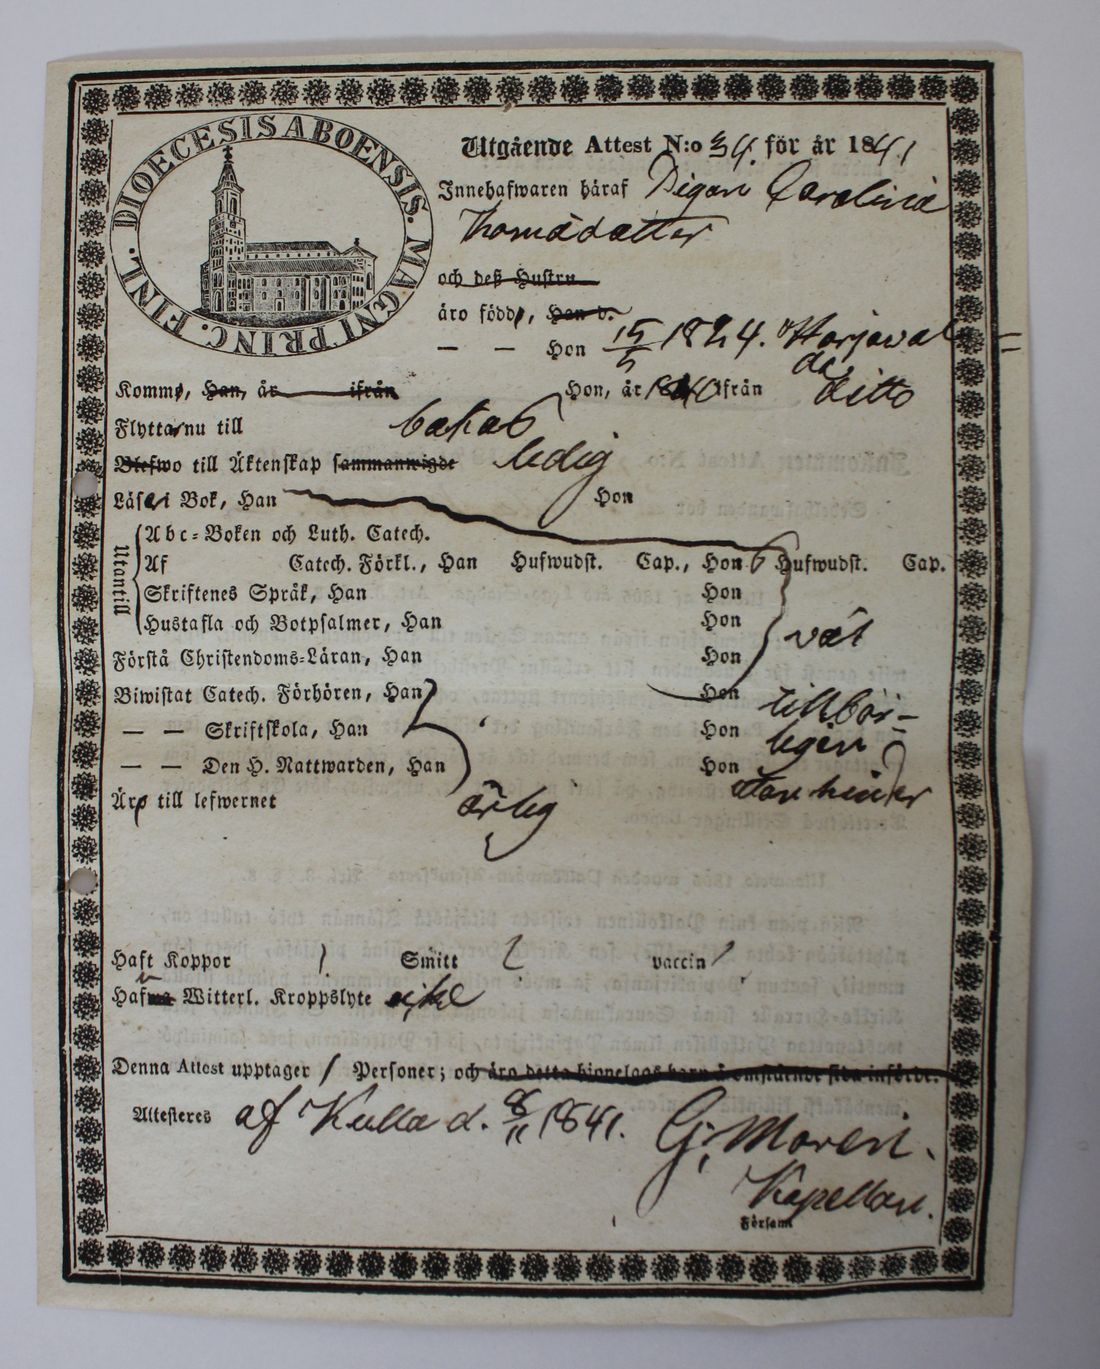 DIOECESIS ABOENSIS. MAGNI PRINC. FINL.
Utgående Attest N:o 34. för år 1841
Innehafwaren häraf Pigan Carolina
Thomasdotter
och deß Hustru
äro född, Han d.
— — Hon 15/5 1824. Harjaval=
da
Komm, Han, år ifrån Hon, år 1840 ifrån ditto
Flytta nu till
Blefwo till Äktenskap sammanwigde ledig
Läsa i Bok, Han Hon
Utantill
Abc-Boken och Luth. Catech.
Af Catech. Förkl., Han Hufwudst. Cap., Hon 6 Hufwudst. Cap.
Skriftenes Språk, Han Hon
Hustafla och Botpsalmer, Han Hon
Förstå Christendoms-Läran, Han Hon väl
Biwistat Catech. Förhören, Han Hon tillbör-
— — Skriftskola, Han Hon ligen
— — Den H. Nattwarden, Han Hon utan hinder
Äro till lefwernet ärlig
Haft Koppor 1. Smitt vaccin
Hafwa Witterl. Kroppslyte icke
Denna Attest upptager 1 Personer; och äro detta hionelags barn å omstående sida införde.
Attesteres af Kulla d. 8/11 1841. G. Moren.
Kapellan.
Försam